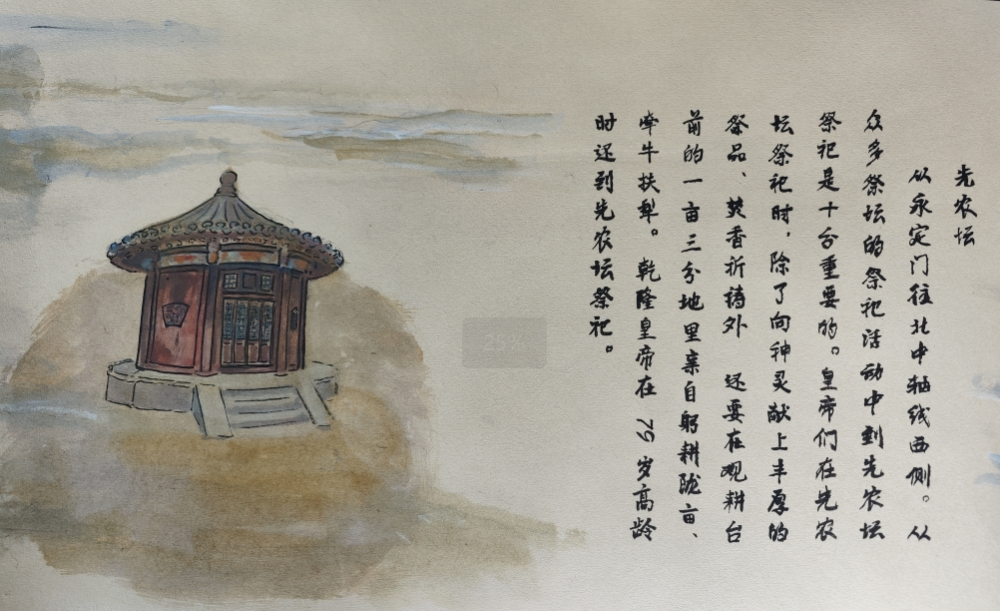 先农坛
从永定门往北中轴线西侧。从
众多祭坛的祭祀活动中到先农坛
祭祀是十分重要的。皇帝们在先农
坛祭祀时，除了向神灵献上丰厚的
祭品、焚香祈祷外 还要在观耕台
前的一亩三分地里亲自躬耕陇亩、
牵牛扶犁。乾隆皇帝在 79 岁高龄
时还到先农坛祭祀。